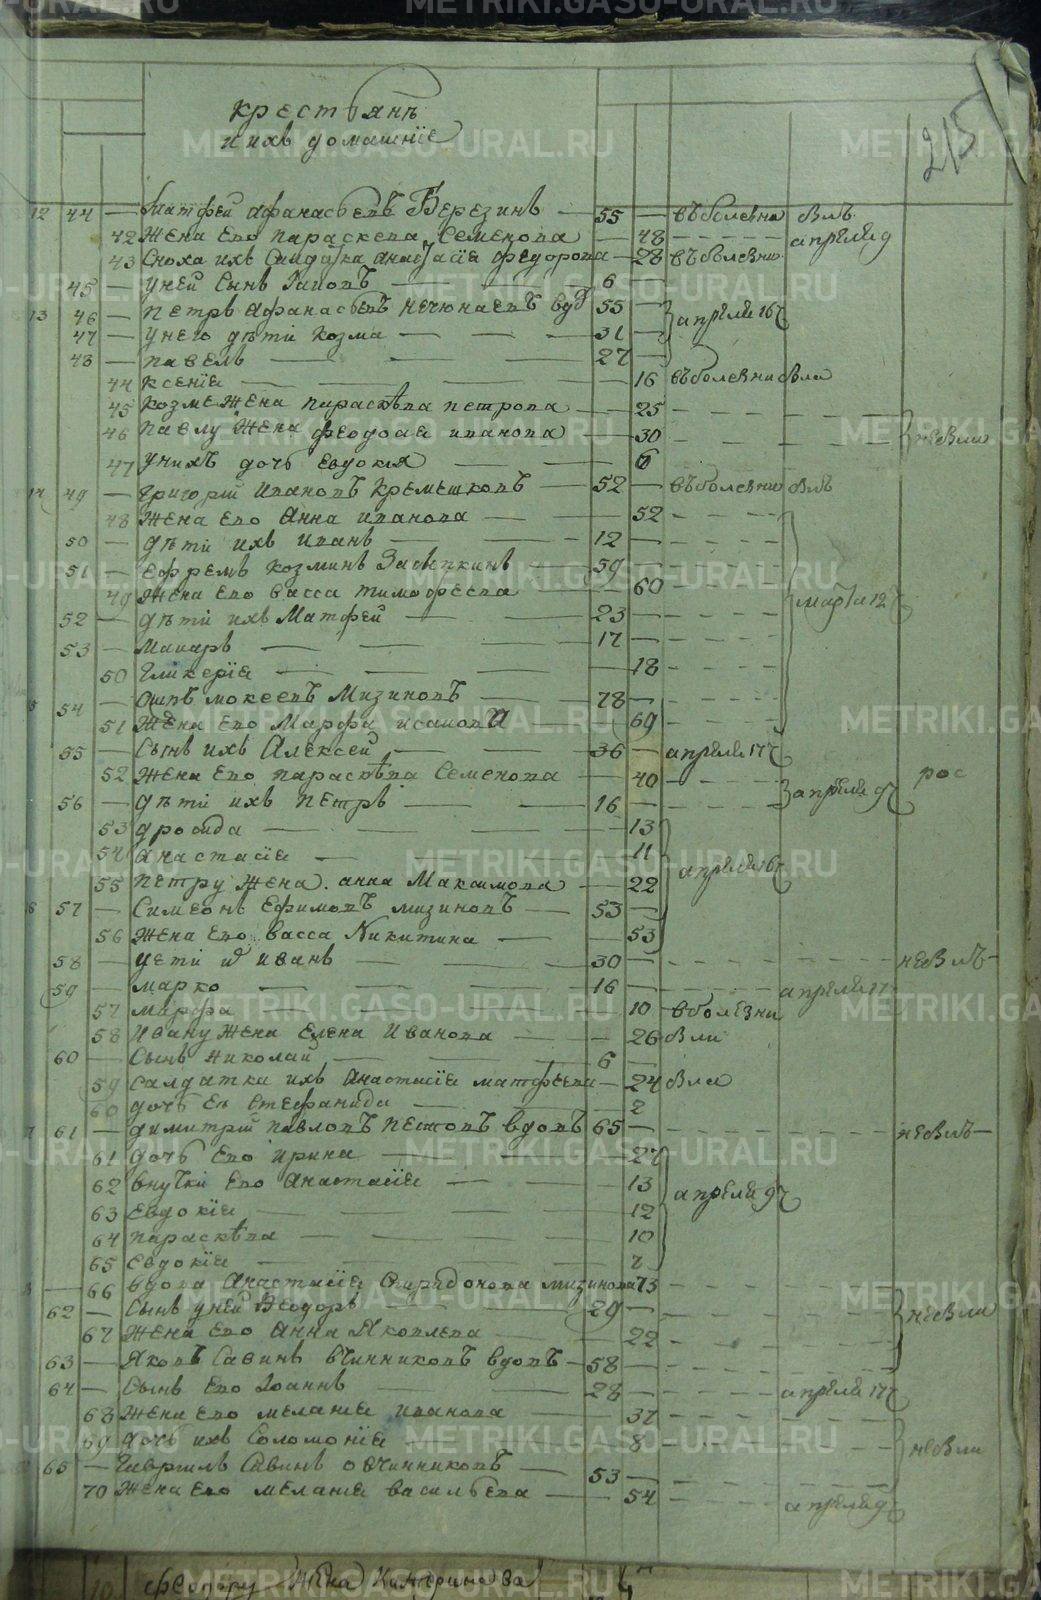 215
крестьянъ
и ихъ домашніе
12 44 — Матфей Афанасьевъ Березинъ — 55 — въ болезни былъ
42 жена ево параскева Семенова — 48 апреля 9
43 Сноха ихъ Салдатка анастасіе федорова — 28 въ болезни
45 — у ней сынъ — 6
13 46 — петръ афанасьевъ вдо 55 —
47 — у него дѣти козма — 31 — апреля 16 ч
48 — павелъ — 27 —
44 ксеніе — 16 въ болезни была
45 козме жена параскѣва петрова — 25
46 павлу жена феодосія иванова — 30 небыли
47 у нихъ дочь евдокія — 6
14 49 — григорій ивановъ кремешковъ — 52 — въ болезни былъ
48 жена ево анна иванова — 52
50 — дѣти ихъ иванъ — 12 —
51 — ефремъ козминъ — 59 —
49 жена ево васса тимофеева — 60 марта 12 ч
52 — дѣти ихъ Матфей — 23 —
53 — макаръ — 17 —
50 гликеріе — 18
54 — мокеевъ Мизиновъ — 78 —
51 жена ево Марфа — 69
55 — сынъ ихъ Алексей — 36 — апреля 17 ч
52 жена ево параскѣва Семенова — 40 апреля 9 ч рос
56 — дѣти ихъ петръ — 16 —
53 дросида — 13
54 анастасіе — 11
55 петру жена анна Максимова — 22 апреля 16 ч
57 — Симеонъ Ефимовъ мизиновъ — 53 —
56 жена ево васса Никитина — 53
58 — дети и иванъ — 30 — небылъ
59 — марко — 16 — апреля 17
57 марфа — 10 в болезни
58 ивану жена елена Иванова — 26 были
60 — сынъ николай — 6 —
59 салдатка ихъ анастасіе матфеева — 24 была
60 дочь ея стефанида — 2
61 — димитрій павловъ вдовъ 65 — небылъ
61 дочь ево ирина — 27
62 внучки ево анастасіе — 13 апреля 9 ч
63 евдокіе — 12
64 параскѣва — 10
65 евдокіе — 7
66 вдова анастасіе Спиридонова мизинова 73
62 — сынъ у ней Феодоръ — 29 — небыли
67 жена ево анна яковлева — 22
63 — яковъ Савинъ вчинниковъ вдовъ — 58 —
64 — сынъ ево Іоаннъ — 28 — апреля 17 ч
68 жена ево меланіе иванова — 37
69 дочь ихъ Соломоніе — 8 небыли
65 — гаврилъ Савинъ овчинниковъ — 53 —
70 жена ево меланіе васильева — 54 апреля 9 ч
феодору жена